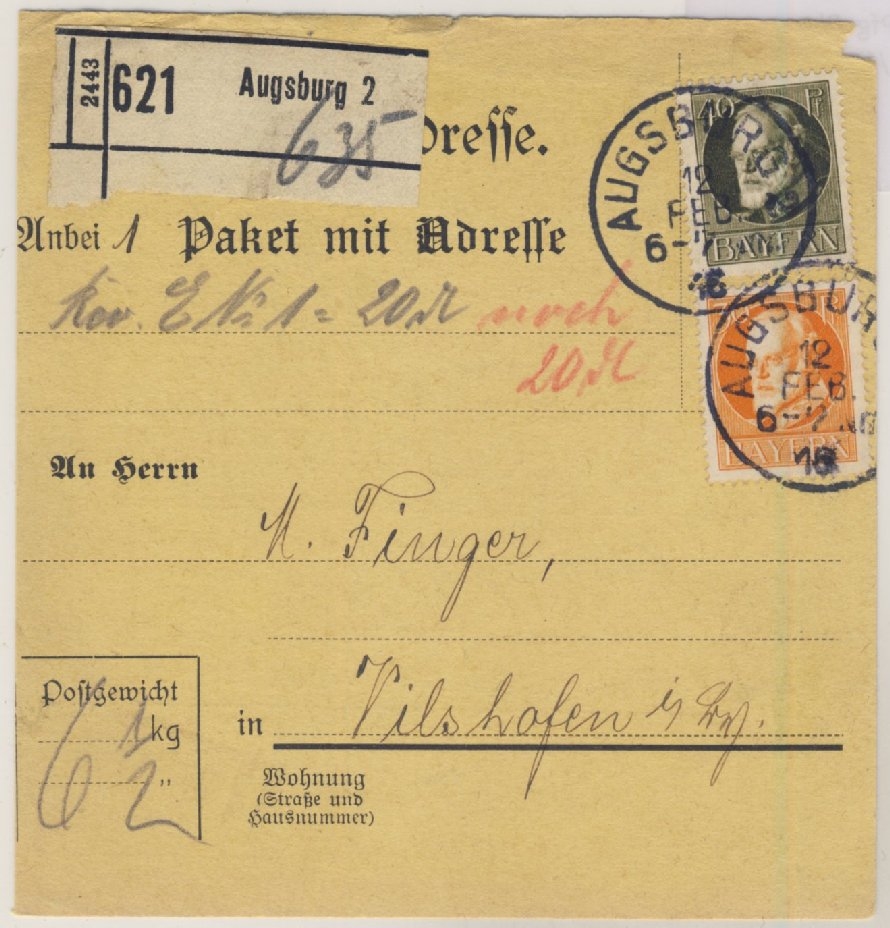 2443
621 Augsburg 2
635
dresse.
Anbei 1 Paket mit Adresse
E No 1 = 20 M noch
20 M
An Herrn
M. Finger,
Postgewicht
6 1/2 kg
"
in Vilshofen
Wohnung
(Straße und
Hausnummer)
40 Pf
BAYERN
AUGSBURG
12
FEB.
6-7
16
BAYERN
AUGSBUR
12
FEB.
6-7
16